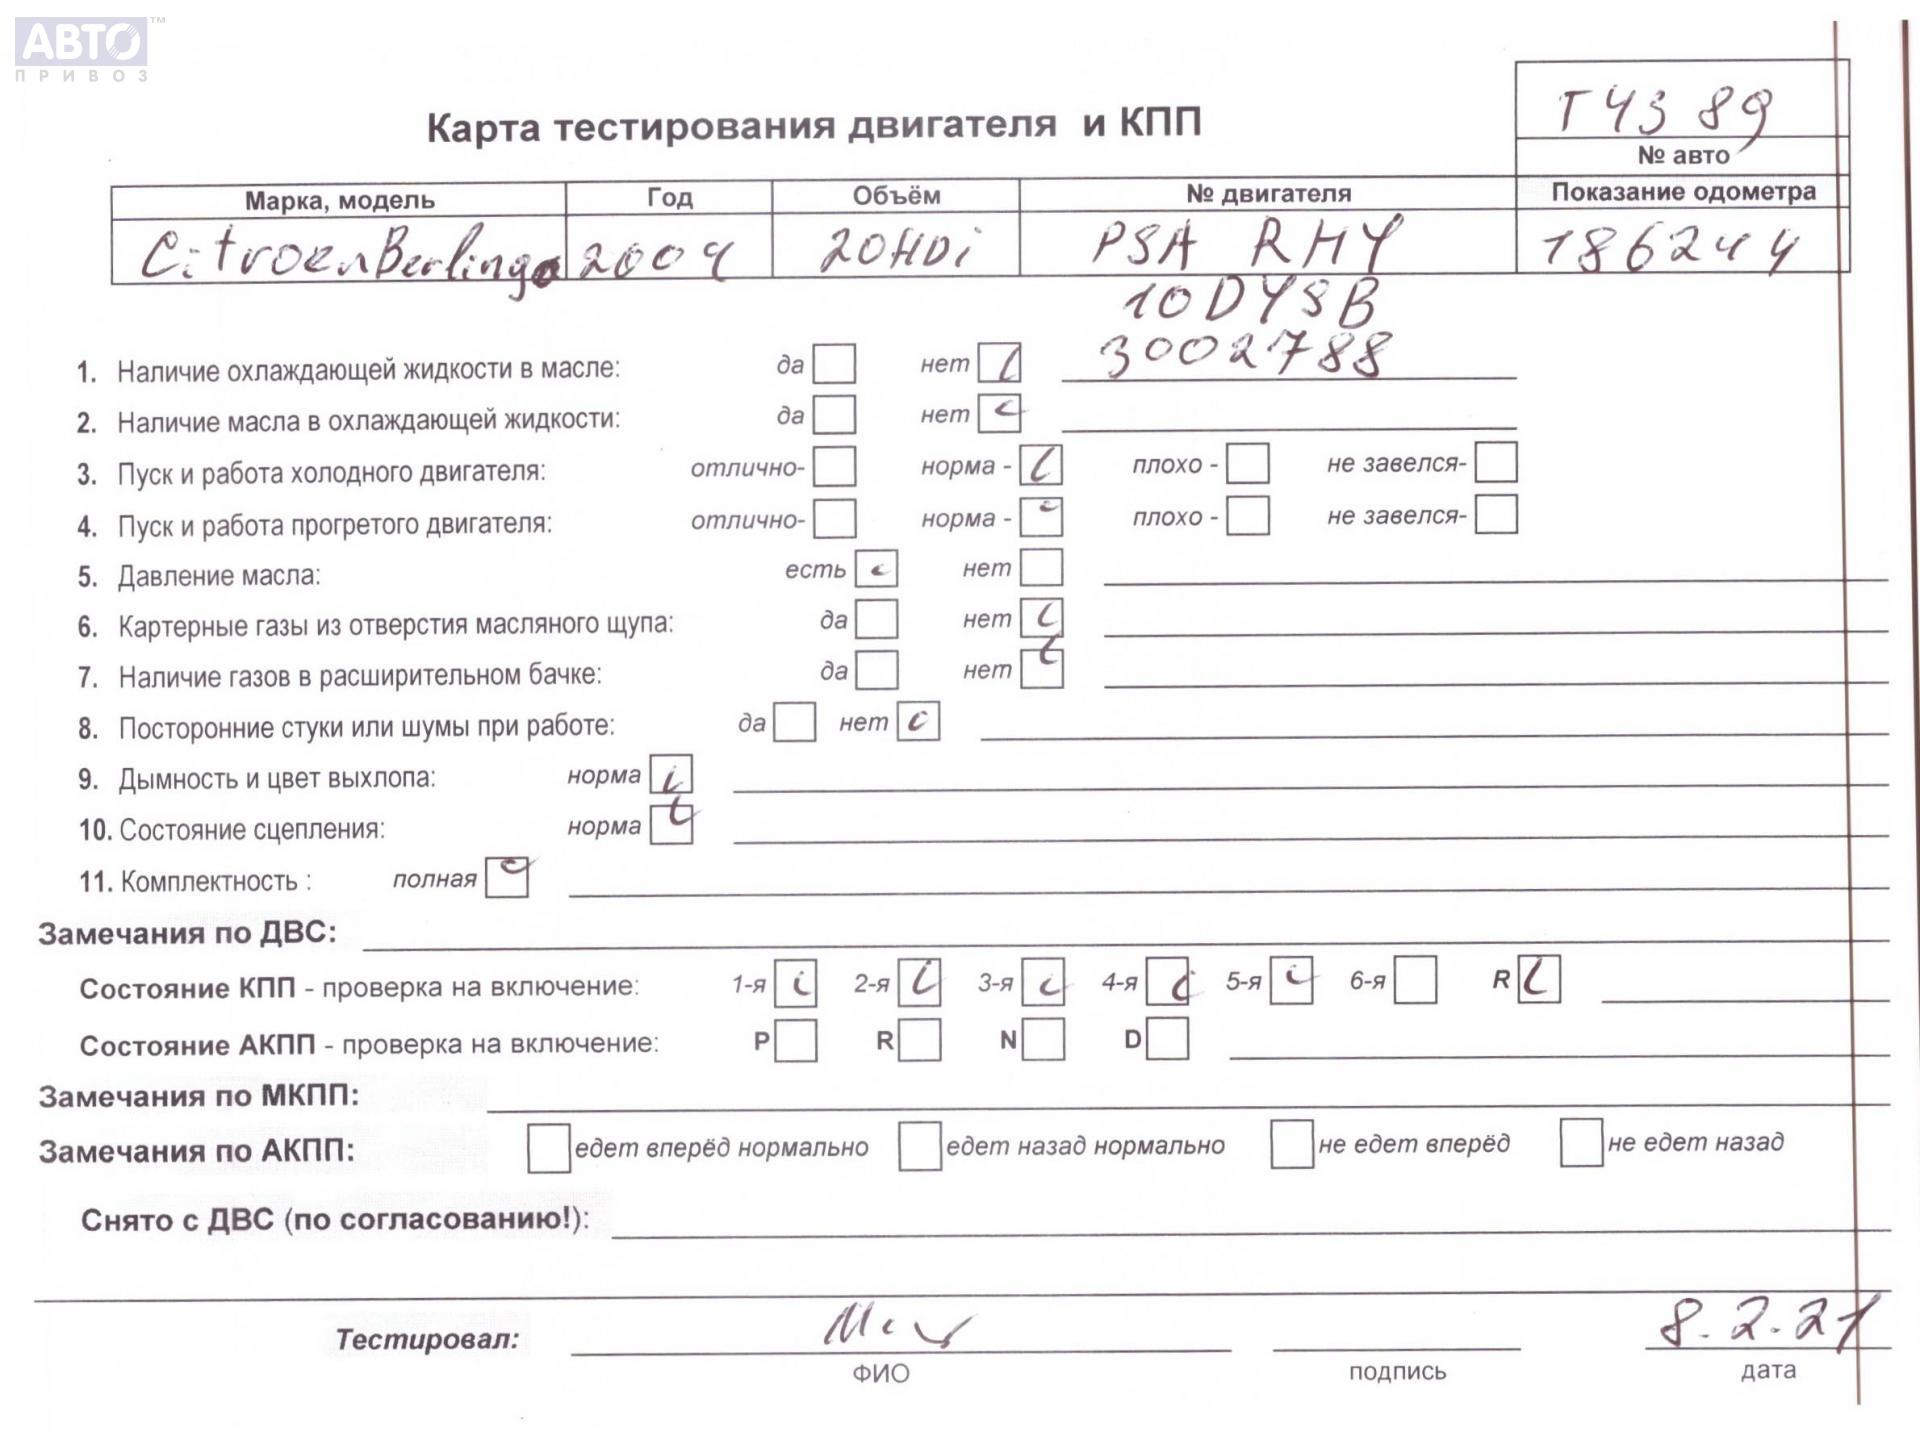 АВТО™
ПРИВОЗ
Т4389
Карта тестирования двигателя и КПП
№ авто
Марка, модель Год Объём № двигателя Показание одометра
Citroen Berlingo 2004 20HDi PSA RHY 186244
10DYSB
3002788
1. Наличие охлаждающей жидкости в масле: да нет
2. Наличие масла в охлаждающей жидкости: да нет
3. Пуск и работа холодного двигателя: отлично- норма - плохо - не завелся-
4. Пуск и работа прогретого двигателя: отлично- норма - плохо - не завелся-
5. Давление масла: есть нет
6. Картерные газы из отверстия масляного щупа: да нет
7. Наличие газов в расширительном бачке: да нет
8. Посторонние стуки или шумы при работе: да нет
9. Дымность и цвет выхлопа: норма
10. Состояние сцепления: норма
11. Комплектность : полная
Замечания по ДВС:
Состояние КПП - проверка на включение: 1-я 2-я 3-я 4-я 5-я 6-я R
Состояние АКПП - проверка на включение: P R N D
Замечания по МКПП:
Замечания по АКПП: едет вперёд нормально едет назад нормально не едет вперёд не едет назад
Снято с ДВС (по согласованию!):
Тестировал: 8.2.21
ФИО подпись дата